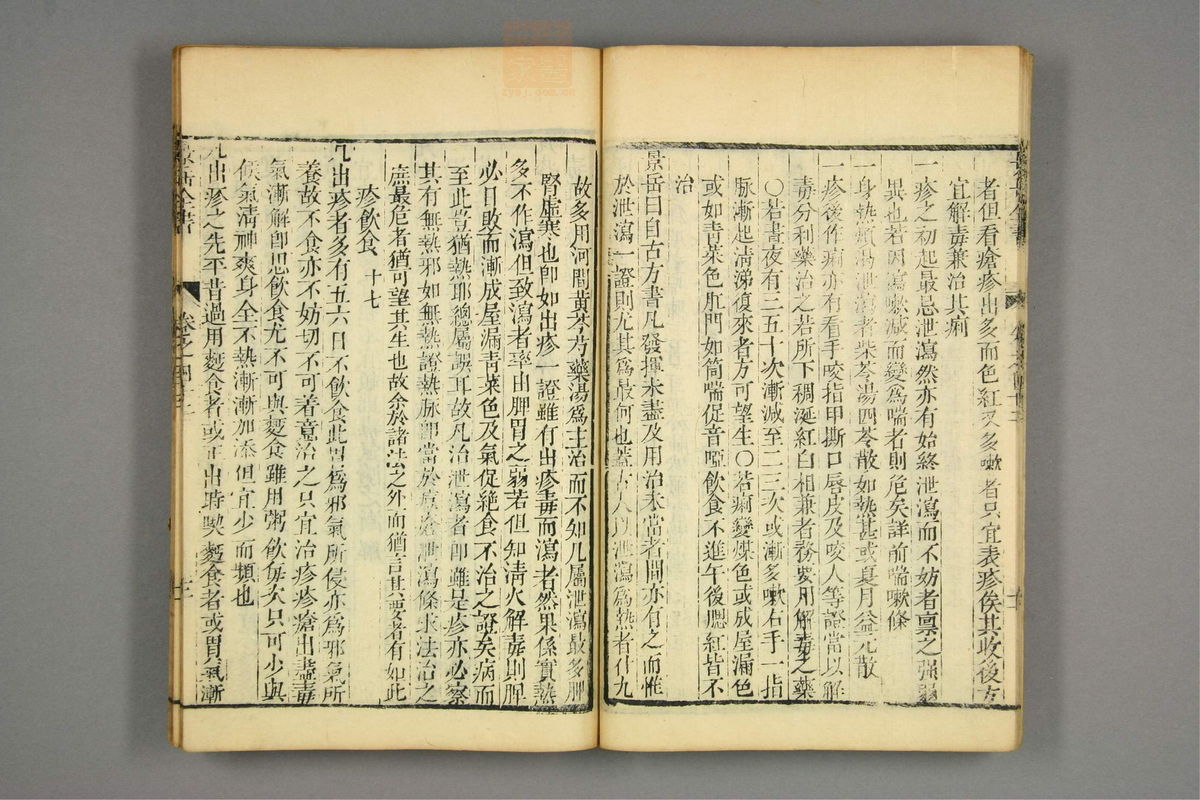 者但看瘡疹出多而色紅又多嗽者只宜表疹俟其收後方
宜解毒兼治其痢
一疹之初起最忌泄瀉然亦有始終泄瀉而不妨者禀之強弱
異也若因瀉嗽減而變爲喘者則危矣詳前喘嗽條
一身熱煩渴泄瀉者柴苓湯四苓散如熱甚或夏月益元散
一疹後作痢亦有看手咬指甲撕口唇皮及咬人等證當以解
毒分利藥治之若所下稠涎紅白相兼者務要用解毒之藥
〇若晝夜有三五十次漸減至二三次或漸多嗽右手一指
脈漸起清涕復來者方可望生〇若痢變煤色或成屋漏色
或如青菜色肛門如筒喘促音啞飲食不進午後腮紅皆不
治
景岳曰自古方書凡發揮未盡及用治未當者間亦有之而惟
於泄瀉一證則尤其爲最何也蓋古人以泄瀉爲熱者什九
故多用河間黃芩芍藥湯爲主治而不知凡屬泄瀉最多脾
腎虛寒也卽如出疹一證雖有出疹毒而瀉者然果係實熱
多不作瀉但致瀉者率由脾胃之弱若但知清火解毒則脾
必日敗而漸成屋漏靑菜色及氣促絕食不治之證矣病而
至此豈猶熱耶總屬誤耳故凡治泄瀉者卽雖是疹亦必察
其有無熱邪如無熱證熱脈卽當於痘瘡泄瀉條求法治之
庶最危者猶可望其生也故余於諸法之外而猶言其要者有如此
疹飲食 十七
凡出疹者多有五六日不飲食此胃爲邪氣所侵亦爲邪氣所
養故不食亦不妨切不可着意治之只宜治疹疹瘡出盡毒
氣漸解卽思飲食尤不可與麪食雖用粥飲每次只可少與
候氣清神爽身全不熱漸漸加添但宜少而頻也
凡出疹之先平昔過用麪食者或正出時喫麪食者或胃氣漸
景岳全書